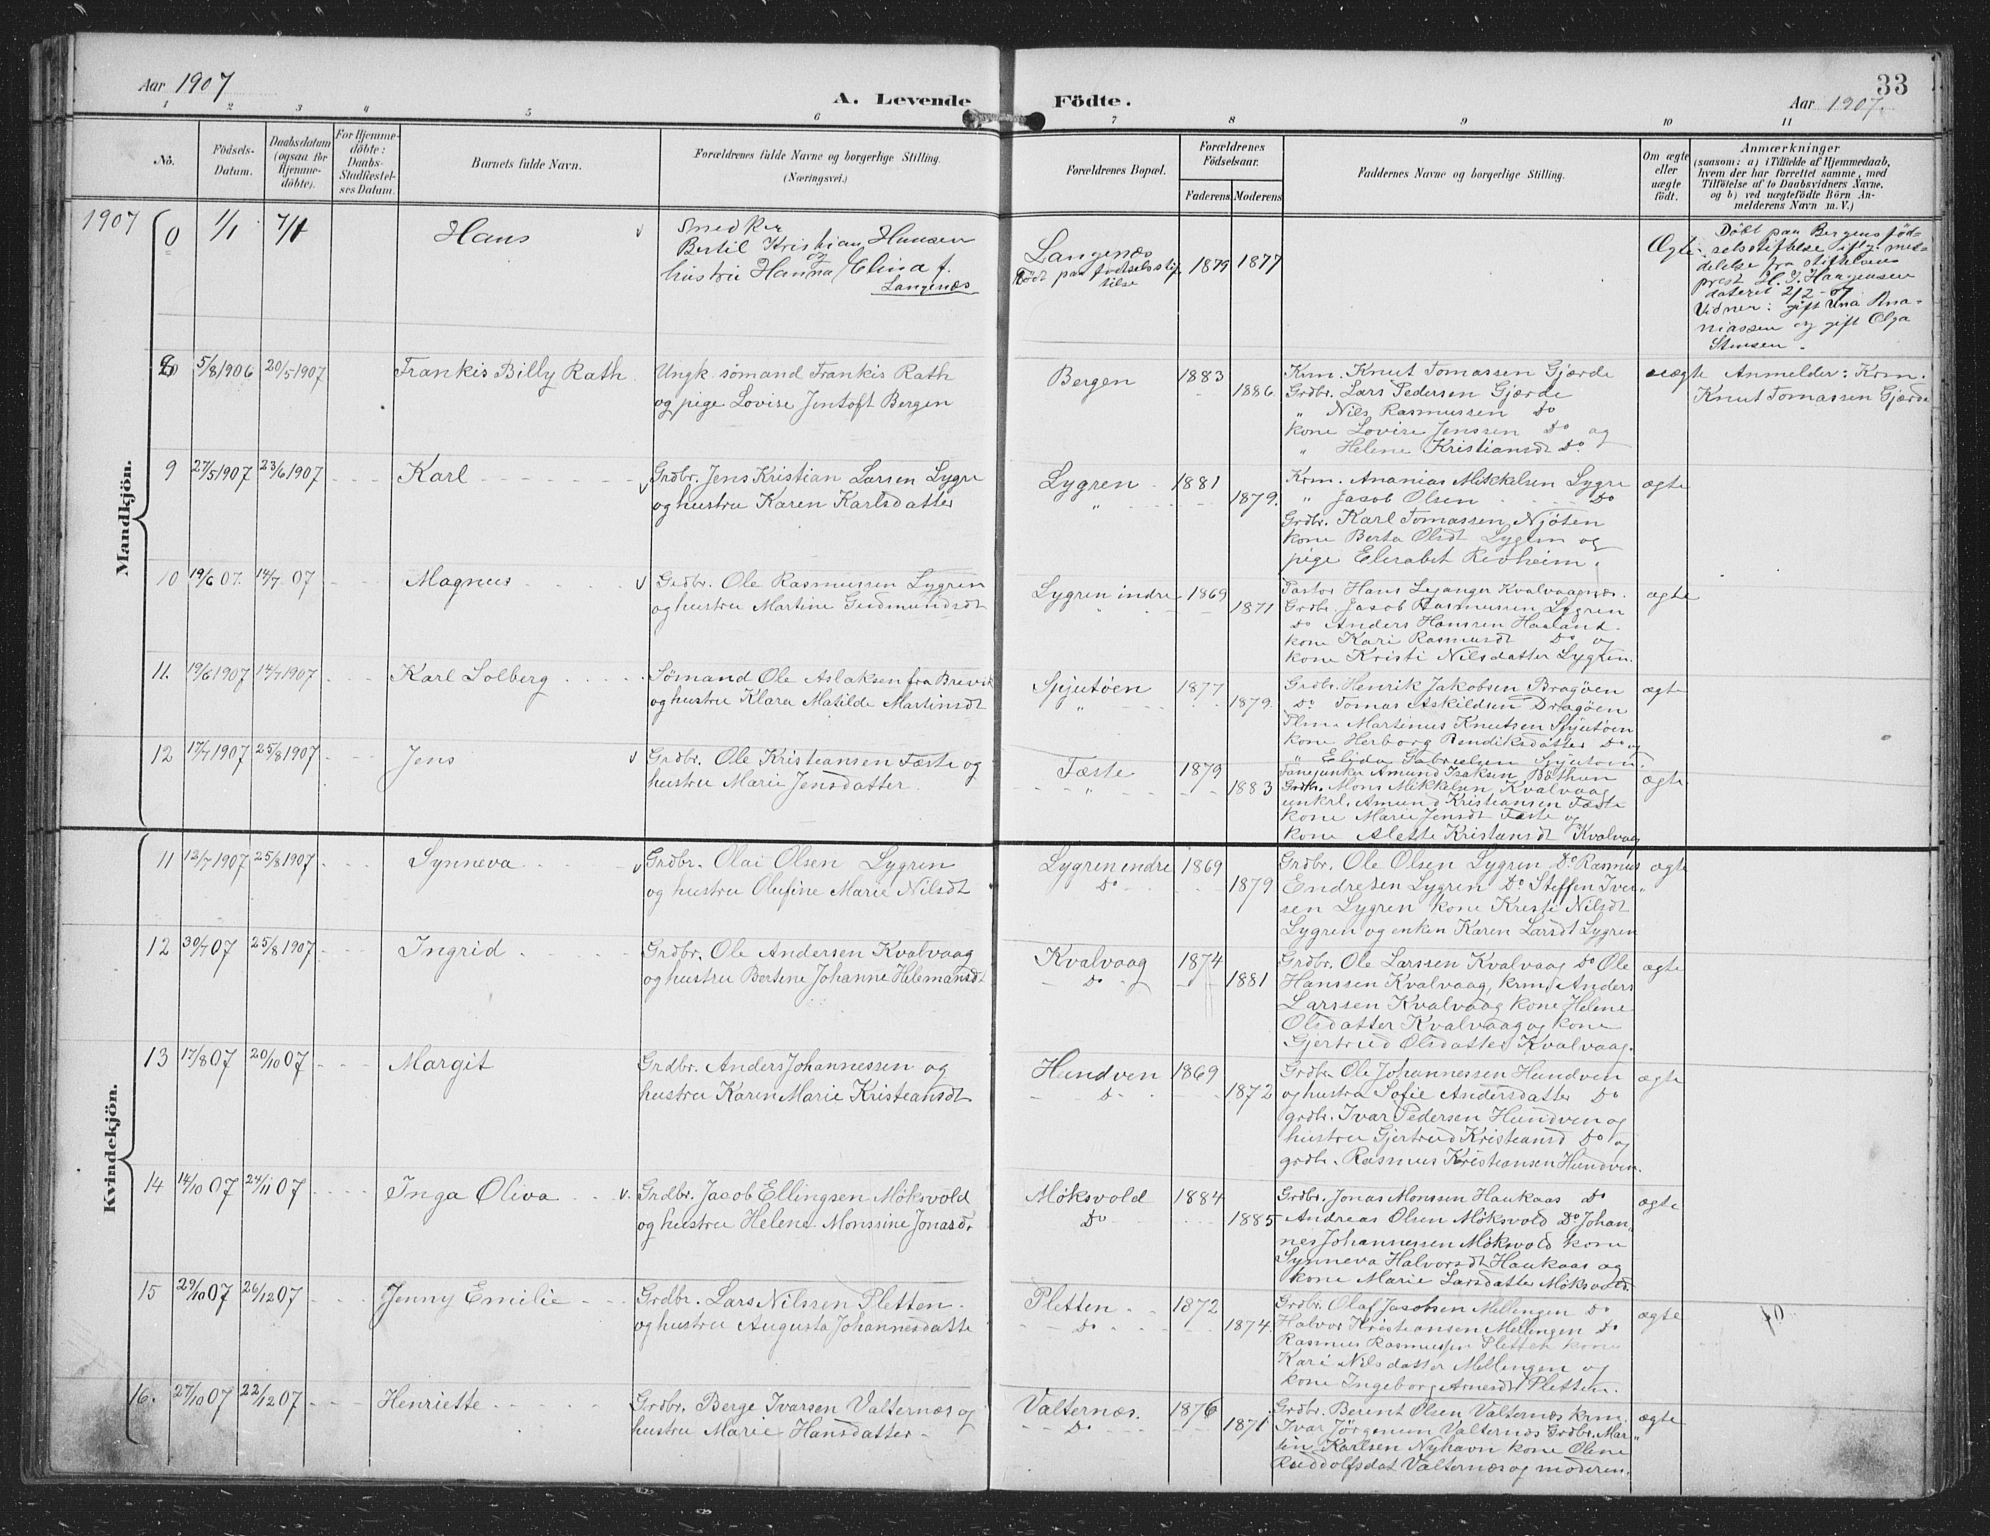 Aar 1907
A. Levende Födte.
33
Aar 1907.
1 2 3 4 5 6 7 8 9 10 11
No.
Födsels-
Datum.
Daabsdatum
(ogsaa for
Hjemme-
döbte).
For Hjemme-
döbte:
Daabs-
Stadfæstel-
ses Datum.
Barnets fulde Navn.
Forældrenes fulde Navne og borgerlige Stilling.
(Næringsvei.)
Forældrenes Bopæl.
Forældrenes
Födselsaar.
Faderens
Moderens
Faddernes Navne og borgerlige Stilling.
Om ægte
eller
uægte
födt.
Anmærkninger
(saasom: a) i Tilfælde af Hjemmedaab,
hvem der har forrettet samme, med
Tilföielse af to Daabsvidners Navne.
og b) ved uægtefödte Börn An-
melderens Navn m. V.)
Mandkjön.
1907
0 1/1 7/1 Hans
Snedker
Bertil Kristian Hansen
og
hustru Hanna Elina f.
Langenæs
Langenæs
Födt paa födselsstif
telse
1879 1877
Ægte
Döbt paa Bergens föd-
selsstiftelse iflg. med-
delelse fra stiftelsens
prest H. J. Haagensen
dateret 2/2 - 07
Vidner: gift Una Ana-
niassen og gift Olga
Stensen.
8 5/8 1906 20/5 1907 Frankis Billy Rath
Ungk sömand Frankis Rath
og pige Lovise Jentoft Bergen
Bergen 1883
1886
Krm. Knut Tomassen Gjærde
Grdbr. Lars Pedersen Gjærde
" Nils Rasmussen Do
kone Lovise Jenssen Do og
" Helene Kristiansdt Do.
uægte
Anmelder: Krm.
Knut Tomassen Gjærde
9 27/5 1907 23/6 1907 Karl
Grdbr. Jens Kristian Larsen Lygre
og hustru Karen Karlsdatter
Lygren 1881
" 1879.
Krm. Ananias Mikkelsen Lygre
" Jacob Olsen Do
Grdbr. Karl Tomassen Njöten
kone Berta Olsdt Lygren og
pige Elisabet Revheim.
ægte
10 19/6 07. 14/7 07 Magnus
Grdbr. Ole Rasmussen Lygren
og hustru Martine Gudmundsdt
Lygren indre 1869
" 1871
Pastor Hans Leganger Kvalvaagnes.
Grdbr. Jacob Rasmussen Lygren
Do Anders Hanssen Haaland.
kone Kari Rasmusdt Do og
kone Kristi Nilsdatter Lygren.
ægte
11. 19/6 1907 14/7 1907 Karl Solberg
Sömand Ole Aslaksen fra Brevik
og hustru Klara Matilde Martinsdt
Spjutöen 1877
" 1879.
Grdbr. Henrik Jakobsen Dragöen
Do Tomas Askildsen Dragöen
Flm. Martinus Knutsen Spjutöen
kone Herborg Bendiksdatter Do og
" Elida Gabrielsen Spjutöen.
ægte
12 17/7 1907 25/8 1907 Jens
Grdbr. Ole Kristiansen Fæste og
hustru Marie Jensdatter.
Fæste 1879
" 1883
Fanejunker Amund Isaksen Böthun
Grdbr. Mons Mikkelsen Kvalvaag
unkrl. Amund Kristiansen Fæste
kone Marie Jensdt Fæste og
kone Alette Kristansdt Kvalvaag
ægte
Kvindekjön.
11 12/7 1907 25/8 1907 Synneva
Grdbr. Olai Olsen Lygren
og hustru Olufine Marie Nilsdt
Lygren indre 1869
Do 1879
Grdbr. Ole Olsen Lygren Do Rasmus
Endresen Lygren Do Steffen Iver-
sen Lygren kone Kristi Nilsdt
Lygren og enken Karen Larsdt Lygren
ægte
12 30/7 07 25/8 1907 Ingrid
Grdbr. Ole Andersen Kvalvaag
og hustru Bertine Johanne Halemansdt
Kvalvaag 1874
Do 1881
Grdbr. Ole Larssen Kvalvaag Do Ole
Hanssen Kvalvaag, krm. Anders
Larssen Kvalvaag kone Helene
Olsdatter Kvalvaag og kone
Gjertrud Olsdatter Kvalvaag.
ægte
13 17/8 07 20/10 07 Margit
Grdbr. Anders Johannessen og
hustru Karen Marie Kristiansdt
Hundven 1869
Do 1872
Grdbr Ole Johannessen Hundven
og hustru Sofie Andersdatter Do
grdbr. Ivar Pedersen Hundven og
hustru Gjertrud Kristiansd Do og
grdbr. Rasmus Kristiansen Hundven.
ægte
14 14/10 07 24/11 07 Inga Oliva
Grdbr. Jacob Ellingsen Möksvold
og hustru Helene Monssine Jonasd.
Möksvold 1884
Do 1885
Grdbr. Jonas Monssen Haukaas Do
Andreas Olsen Möksvold Do Johan-
nes Johannessen Möksvold kone
Synneva Halvorsdt Haukaas og
kone Marie Larsdatter Möksvold.
ægte
15 29/10 07 26/12 07 Jenny Emilie
Grdbr. Lars Nilssen Pletten.
og hustru Augusta Johannesdatte
Pletten 1872
Do 1874.
Grdbr. Olaf Jacobsen Mellingen Do
Halvor Kristiansen Mellingen Do
Rasmus Rasmussen Pletten kone
Kari Nilsdatter Mellingen og
kone Ingeborg Arnesdt Pletten.
ægte
16. 27/10 07 22/12 07 Henriette
Grdbr. Berge Ivarsen Valternæs og
hustru Marie Hansdatter
Valternæs. 1876
Do 1871
Grdbr. Berent Olsen Valternæs krm.
Ivar Jörgensen Valternæs Grdbr. Mar-
tin Karlsen Nyhavn kone Oline
Ruddolfsdat Valternæs og moderen.
ægte